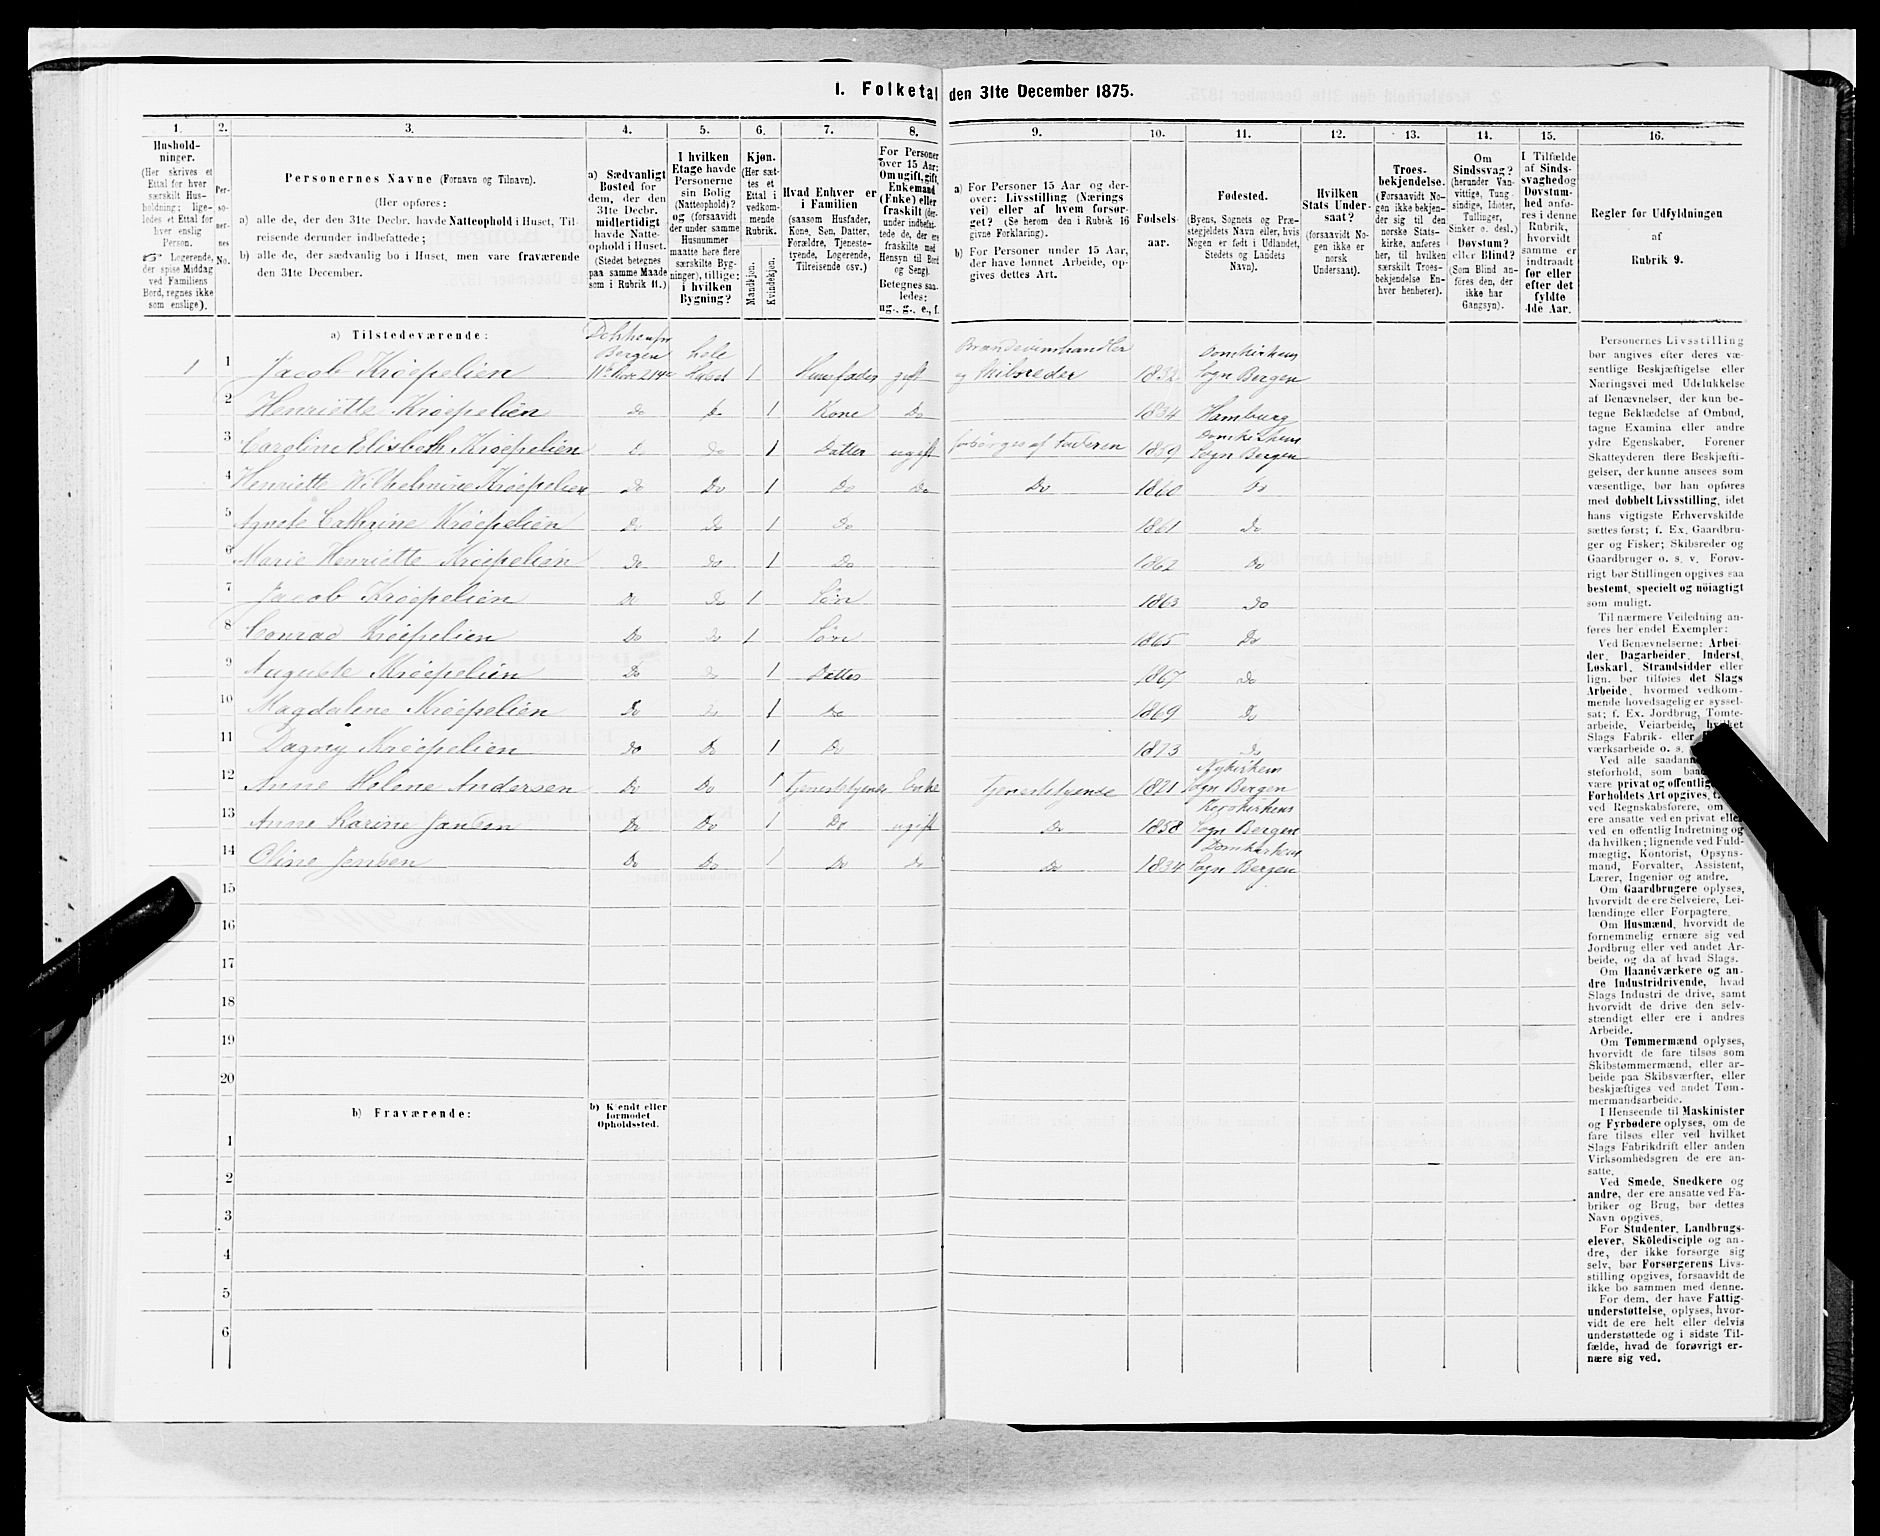 1. Folketal den 31te December 1875.
1. 2. 3. 4. 5. 6. 7. 8. 9. 10. 11. 12. 13. 14. 15. 16.
Hushold-
ninger.
(Her skrives et
Ettal for hver
særskilt Hus-
holdning; lige-
ledes et Ettal for
hver enslig
Person.
Logerende,
der spise Middag
ved Familiens
Bord, regnes ikke
som enslige).
Per-
so-
ner-
nes
No.
Personernes Navne (Fornavn og Tilnavn).
(Her opføres:
a) alle de, der den 31te Decbr. havde Natteophold i Huset, Til-
reisende derunder indbefattede;
b) alle de, der sædvanlig bo i Huset, men vare fraværende
den 31te December.
a) Sædvanligt
Bosted for
dem, der den
31te Decbr.
midlertidigt
havde Natte-
ophold i Huset.
(Stedet betegnes
paa samme Maade
som i Rubrik 11.)
I hvilken
Etage havde
Personerne
sin Bolig
(Natteophold)?
og (forsaavidt
der under samme
Husnummer
maatte høre flere
særskilte Byg-
ninger), tillige:
i hvilken
Bygning?
Kjøn.
(Her sæt-
tes et
Ettal i
vedkom-
mende
Rubrik.
Mandkjøn.
Kvindekjøn.
Hvad Enhver er
i Familien
(saasom Husfader,
Kone, Søn, Datter,
Forældre, Tjeneste-
tyende, Logerende,
Tilreisende osv.)
For Personer
over 15 Aar:
Om ugift, gift,
Enkemand
(Enke) eller
fraskilt (der-
under indbefat-
tede de, der ere
fraskilte med
Hensyn til Bord
og Seng).
Betegnes saa-
ledes:
ug., g., e., f.
a) For Personer 15 Aar og der-
over: Livsstilling (Nærings
vei) eller af hvem forsør-
get? (Se herom den i Rubrik 16
givne Forklaring).
b) For Personer under 15 Aar,
der have lønnet Arbeide, op-
gives dettes Art.
Fødsels-
aar.
Fødested.
(Byens, Sognets og Præ-
stegjeldets Navn eller, hvis
Nogen er født i Udlandet,
Stedets og Landets
Navn).
Hvilken
Stats Under-
saat?
(forsaavidt No-
gen ikke er
norsk
Undersaat).
Troes-
bekjendelse.
(Forsaavidt No-
gen ikke bekjen-
der sig til den
norske Stats-
kirke, anføres
her, til hvilken
særskilt Troes-
bekjendelse En-
hver henhører).
Om
Sindssvag?
(herunder Van-
vittige, Tung
sindige, Idioter,
Tullinger,
Sinker o. desl.)
Døvstum?
eller Blind?
(Som Blind an-
føres den, der
ikke har
Gangsyn).
I Tilfælde
af Sinds-
svaghed og
Døvstum-
hed anfø-
res i denne
Rubrik,
hvorvidt
samme er
indtraadt
før eller
efter det
fyldte
4de Aar.
Regler før Udfyldningen
af
Rubrik 9.
a) Tilstedeværende:
1 1 Jacob Krøepelien Bergen hele Huset 1 Huusfader gift Brændeviinshandler og Skibsreder 1832 Domkirkens Sogn Bergen
2 Henriette Krøepelien Do Do 1 Kone Do 1834 Hamburg
3 Caroline Elisbeth Krøepelien Do Do 1 Datter ugift forsørges af Faderen 1859 Domkirkens Sogn Bergen
4 Henriette Wilhelmine Krøepelien Do Do 1 Do Do Do 1860 Do
5 Agnete Cathrine Krøepelien Do Do 1 Do 1861 Do
6 Marie Henriette Krøepelien Do Do 1 Do 1862 Do
7 Jacob Krøepelien Do Do 1 Søn 1863 Do
8 Conrad Krøepelien Do Do 1 Søn 1865 Do
9 Auguste Krøepelien Do Do 1 Datter 1867 Do
10 Magdalene Krøepelien Do Do 1 Do 1869 Do
11 Dagny Krøepelien Do Do 1 Do 1873 Do
12 Anne Helene Andersen Do Do 1 Tjenestetyende Enke Tjenestetyende 1821 Nykirkens Sogn Bergen
13 Anne Karine Jansen Do Do 1 Do ugift Do 1858 Korskirkens Sogn Bergen
14 Oline Jensen Do Do 1 Do Do Do 1834 Domkirkens Sogn Bergen
15
16
17
18
19
20
b) Fraværende:
b) Kjendt eller
formodet
Opholdssted.
1
2
3
4
5
6
Personernes Livsstilling
bør angives efter deres væ-
sentlige Beskjæftigelse eller
Næringsvei med Udelukkelse
af Benævnelser, der kun be-
tegne Beklædelse af Ombud,
tagne Examina eller andre
ydre Egenskaber. Forener
Skatteyderen flere Beskjæfti-
gelser, der kunne ansees som
væsentlige, bør han opføres
med dobbelt Livsstilling, idet
hans vigtigste Erhvervskilde
sættes først; f. Ex. Gaardbru-
ger og Fisker; Skibsreder og
Gaardbruger o. s. v. Forøv-
rigt bør Stillingen opgives saa
bestemt, specielt og nöiagtigt
som muligt.
Til nærmere Veiledning an-
føres her endel Exempler:
Ved Benævnelserne: Arbei-
der, Dagarbeider, Inderst,
Løskarl, Strandsidder eller
lign. bør tilføies det Slags
Arbeide, hvormed vedkom-
mende hovedsagelig er syssel-
sat; f. Ex. Jordbrug, Tomte-
arbeide, Veiarbeide, hvilket
Slags Fabrik- eller
værksarbeide o. s.
Ved alle saadan
steforhold, som
være privat og offentlig
Forholdets Art opgives,
ved Regnskabsførere, om
ere ansatte ved en privat eller
ved en offentlig Indretning og
da hvilken; lignende ved Fuld-
mægtig, Kontorist, Opsyns-
mand, Forvalter, Assistent,
Lærer, Ingeniør og andre.
Om Gaardbrugere oplyses,
hvorvidt de ere Selveiere, Lei-
lændinge eller Forpagtere.
Om Husmænd, hvorvidt de
fornemmelig ernære sig ved
Jordbrug eller ved andet Ar-
beide, og da af hvad Slags.
Om Haandværkere og an-
dre Industridrivende, hvad
Slags Industri de drive, samt
hvorvidt de drive den selv-
stændigt eller ere i andres
Arbeide.
Om Tømmermænd oplyses,
hvorvidt de fare tilsøs som
Skibstømmermænd, eller ar-
beide paa Skibsværfter, eller
beskjæftiges ved andet Tøm-
mermandsarbeide.
I Henseende til Maskinister
og Fyrbødere oplyses, om de
fare tilsøs eller ved hvilket
Slags Fabrikdrift eller anden
Virksomhedsgren de ere an-
satte.
Ved Smede, Snedkere og
andre, der ere ansatte ved Fa-
briker og Brug, bør dettes
Navn opgives.
For Studenter, Landbrugs-
elever, Skôledisciple og an-
dre, der ikke forsørge sig
selv, bør Forsørgerens Livs-
stilling opgives, forsaavidt de
ikke bo sammen med denne.
For dem, der have Fattig-
understøttelse, oplyses, hvor-
vidt de ere helt eller delvis
understøttede og i sidste Til-
fælde, hvad de forøvrigt er-
nære sig ved.